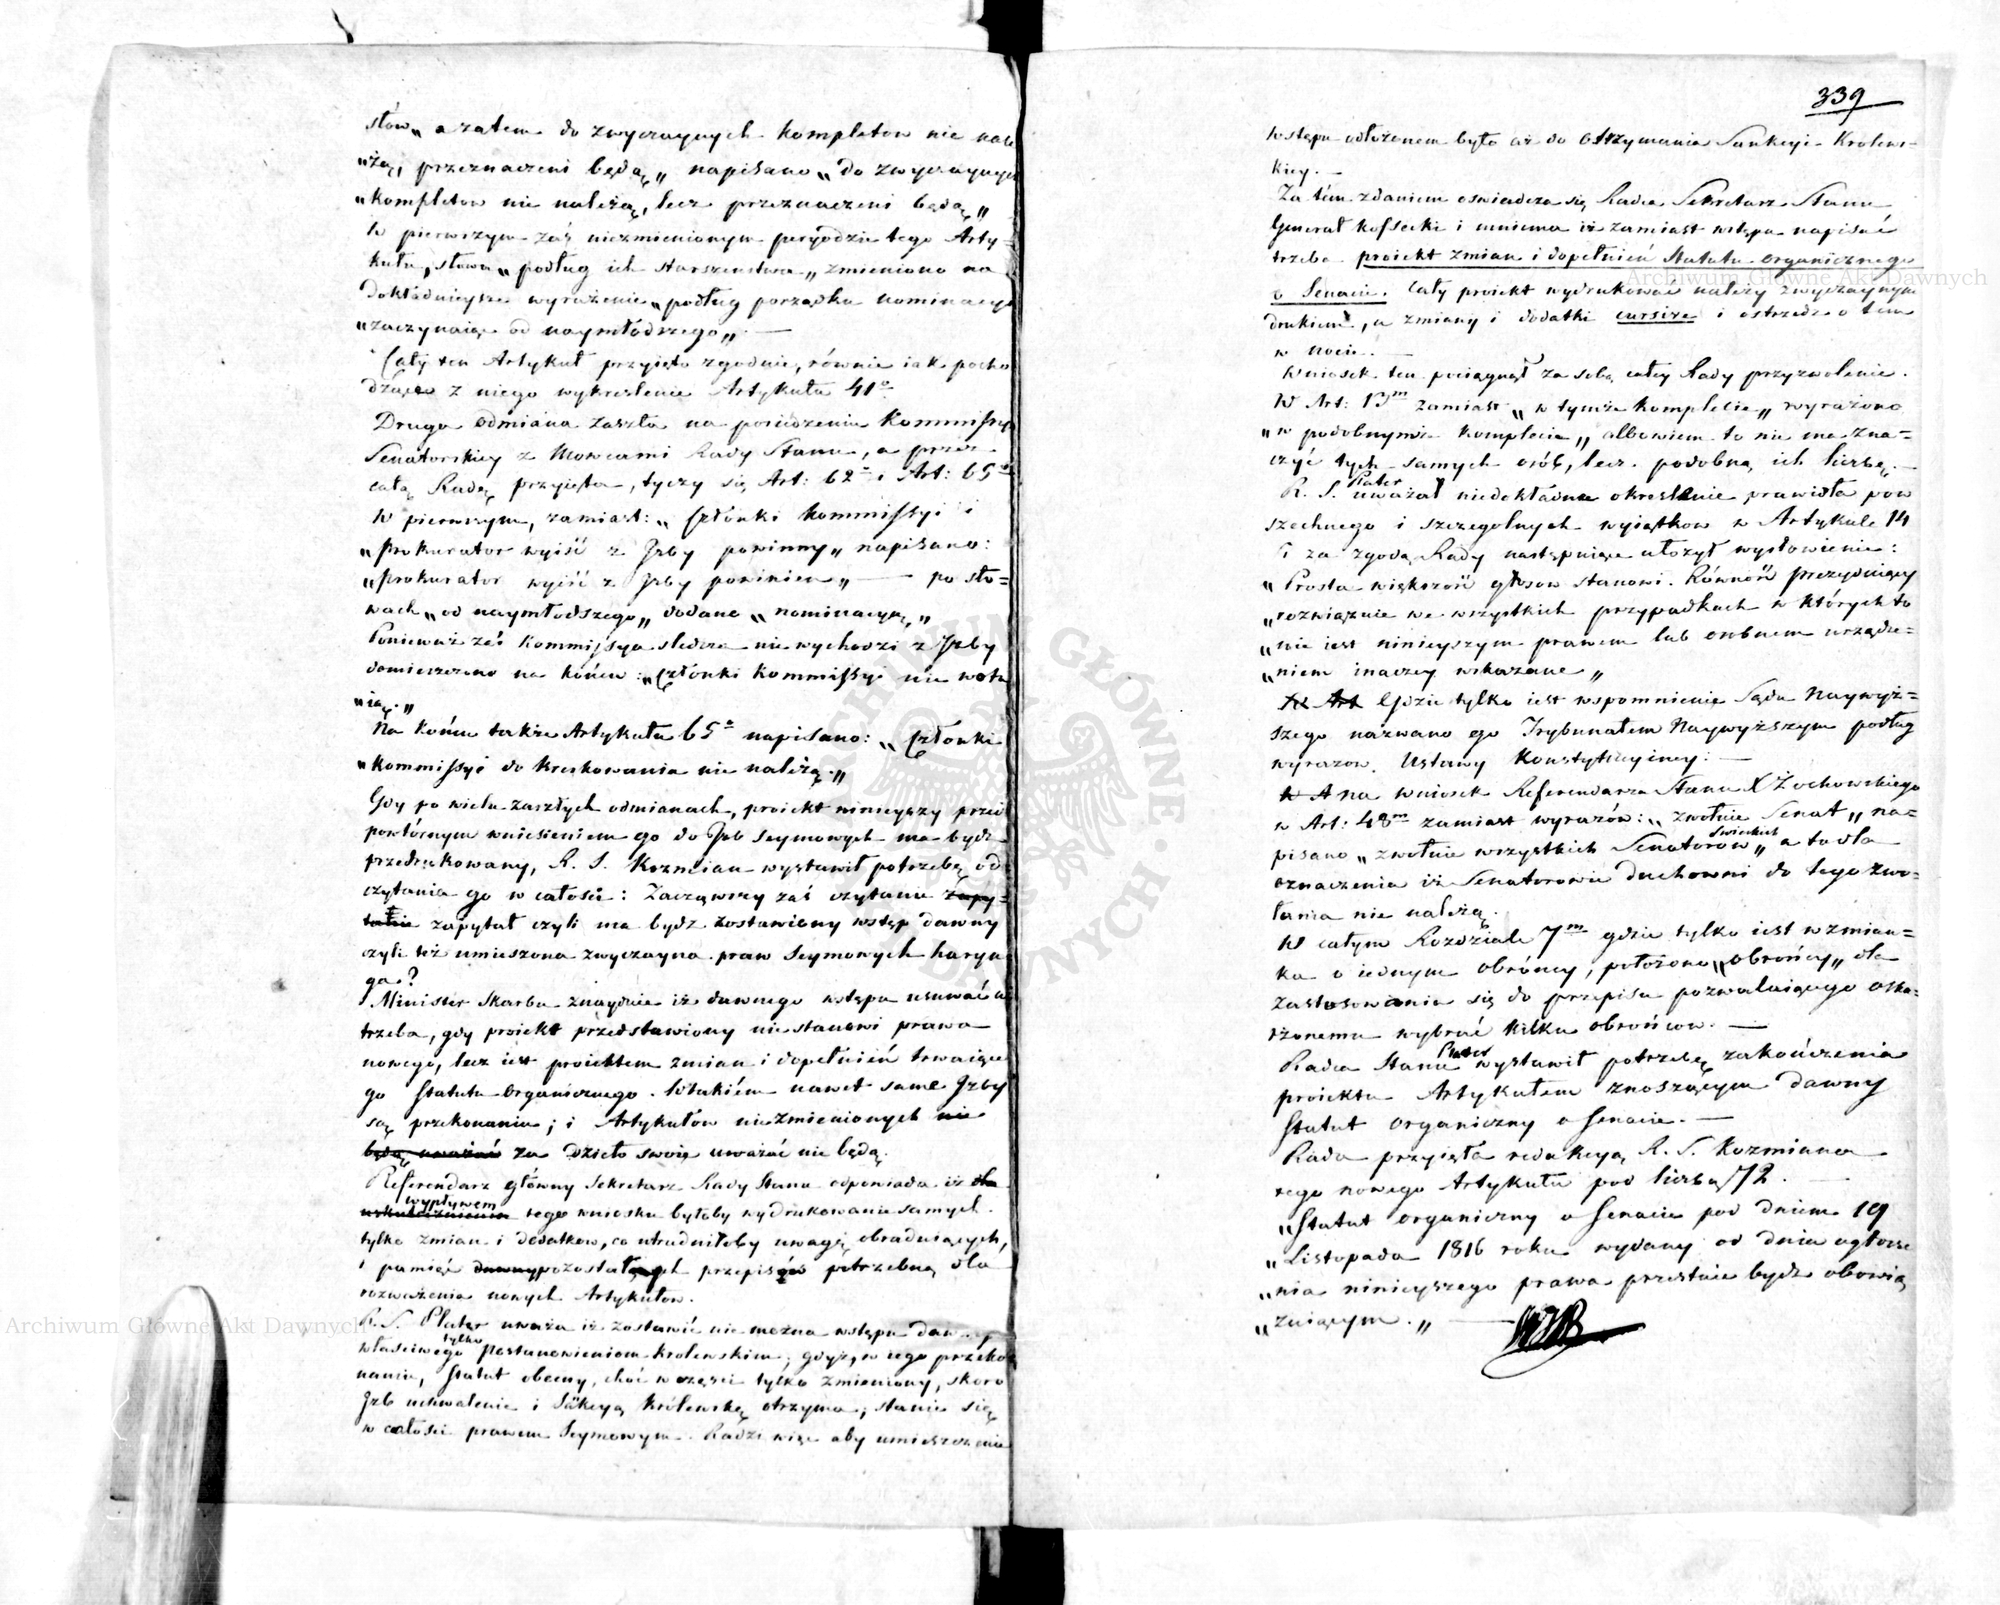 słów „a zatem do zwyczaynych kompletow nie nale
„żą, przeznaczeni będą„ napisano „do zwyczaynych
„kompletow nie należą, lecz przeznaczeni będą„
W pierwszym zaś niezmienionym peryodzie tego Arty-
kułu, słowa „podług ich starszenstwa„ zmieniono na
dokładnieysze wyrażenie „podług porządku nominacyi
„zaczynaiąc od naymłódszego„. —
Cały ten Artykuł przyięto zgodnie, równie iak pocho
dzące z niego wykreslenie Artykułu 41°
Druga odmiana zaszła na posiedzeniu Kommissyi
Senatorskiey z Mowcami Rady Stanu, a przez
całą Radę przyięta, tyczy się Art: 62° i Art: 65°
W pierwszym, zamiast: „Członki Kommissyi i
„Prokurator wyiść z Izby powinny„ napisano:
„Prokurator wyiść z Izby powinien„ — po sło-
wach „od naymłodszego„ dodano „nominacyą„
Ponieważ zaś Kommissya sledcza nie wychodzi z Izby
domieszczono na końcu: „Członki Kommissyi nie wotu
„ią.„
Na końcu także Artykułu 65° napisano: „Członki
„Kommissyi do kreskowania nie należą.„
Gdy po wielu zaszłych odmianach, proiekt ninieyszy przed
powtórnym wniesieniem go do Izb Seymowych ma bydź
przedrukowany, R. S. Kozmian wystawił potrzebę od
czytania go w całości: Zacząwszy zaś czytanie zapy-
tanie zapytał czyli ma bydź zostawiony wstęp dawny
czyli też umieszczona zwyczayna praw Seymowych haryn
ga?
Minister Skarbu znayduie iż dawnego wstępu usuwać nie
trzeba, gdy proiekt przedstawiony nie stanowi prawa
nowego, lecz iest proiektem zmian i dopełnień trwaiące
go Statutu Organicznego. W takiém nawet same Izby
są przekonaniu; i Artykułów niezmienionych nie
będą uważać za dzieło swoie uważać nie będą.
Referendarz główny Sekretarz Rady Stanu odpowiada iż dla
wypływem
uskutecznienia tego wniosku byłoby wydrukowanie samych
tylko zmian i dodatkow, co utrudniłoby uwagę obraduiących,
i pamięć dawny pozostałych przepisów potrzebną dla
rozważenia nowych Artykułow.
R. S. Plater uważa iż zostawić nie można wstępu dawnego
tylko
właściwego Postanowieniom Krolewskim; gdyż, w iego przeko
naniu, Statut obecny, choć w części tylko zmieniony, skoro
Izb uchwalenie i Sankcyą Królewską otrzyma, stanie się
w całości prawem Seymowym. Radzi więc aby umieszczenie
339
wstępu odłożonem było aż do otrzymania Sankcyi Krolews-
kiey. —
Za tém zdaniem oświadcza się Radca Sekretarz Stanu
Generał Kossecki i mniema iż zamiast wstępu napisać
trzeba proiekt zmian i dopełnień Statutu organicznego
o Senacie. Cały proiekt wydrukować należy zwyczaynym
drukiem, a zmiany i dodatki cursive i ostrzedz o tem
w nocie. —
Wniosek ten pociągnął za sobą całey Rady przyzwolenie.
W Art: 13m zamiast „w tymże komplecie„ wyrażono
„w podobnymże komplecie„ albowiem to nie ma zna-
czyć tych samych osób, lecz podobną ich liczbę. —
Plater
R. S. uważał niedokładne określenie prawidła pow
szechnego i szczegolnych wyiątkow w Artykule 14
i za zgodą Rady następuiące ułożył wysłowienie:
„Prosta większość głosow stanowi. Równość prezyduiący
„rozwiązuie we wszystkich przypadkach w których to
„nie iest ninieyszym prawem lub osobnem urządze-
„niem inaczey wskazane„
W Art Gdzie tylko iest wspomnienie Sądu Naywyż-
szego nazwano go Trybunałem Naywyższym podług
wyrazow Ustawy Konstytucyiney. —
W A na wniosek Referendarza Stanu X Żochowskiego
w Art: 48m zamiast wyrazów: „zwołuie Senat„ na-
świeckich
pisano „zwołuie wszystkich Senatorów„ a to dla
oznaczenia iż Senatorowie duchowni do tego zwo-
łania nie należą.
W całym Rozdziale 7m gdzie tylko iest wzmian-
ka o iednym obróncy, położono „obrońcy„ dla
zastosowania się do przepisu pozwalaiącego oska-
rżonemu wybrać kilku obrońcow. —
Plater
Radca Stanu wystawił potrzebę zakończenia
proiektu Artykułem znoszącym dawny
Statut organiczny o Senacie. —
Rada przyięła redakcyą R. S. Kozmiana
tego nowego Artykułu pod liczbą 72. —
„Statut organiczny o Senacie pod dniem 19
„Listopada 1816 roku wydany od dnia ogłosze
„nia ninieyszego prawa przestaie bydź obowią
„zuiącym.„ —